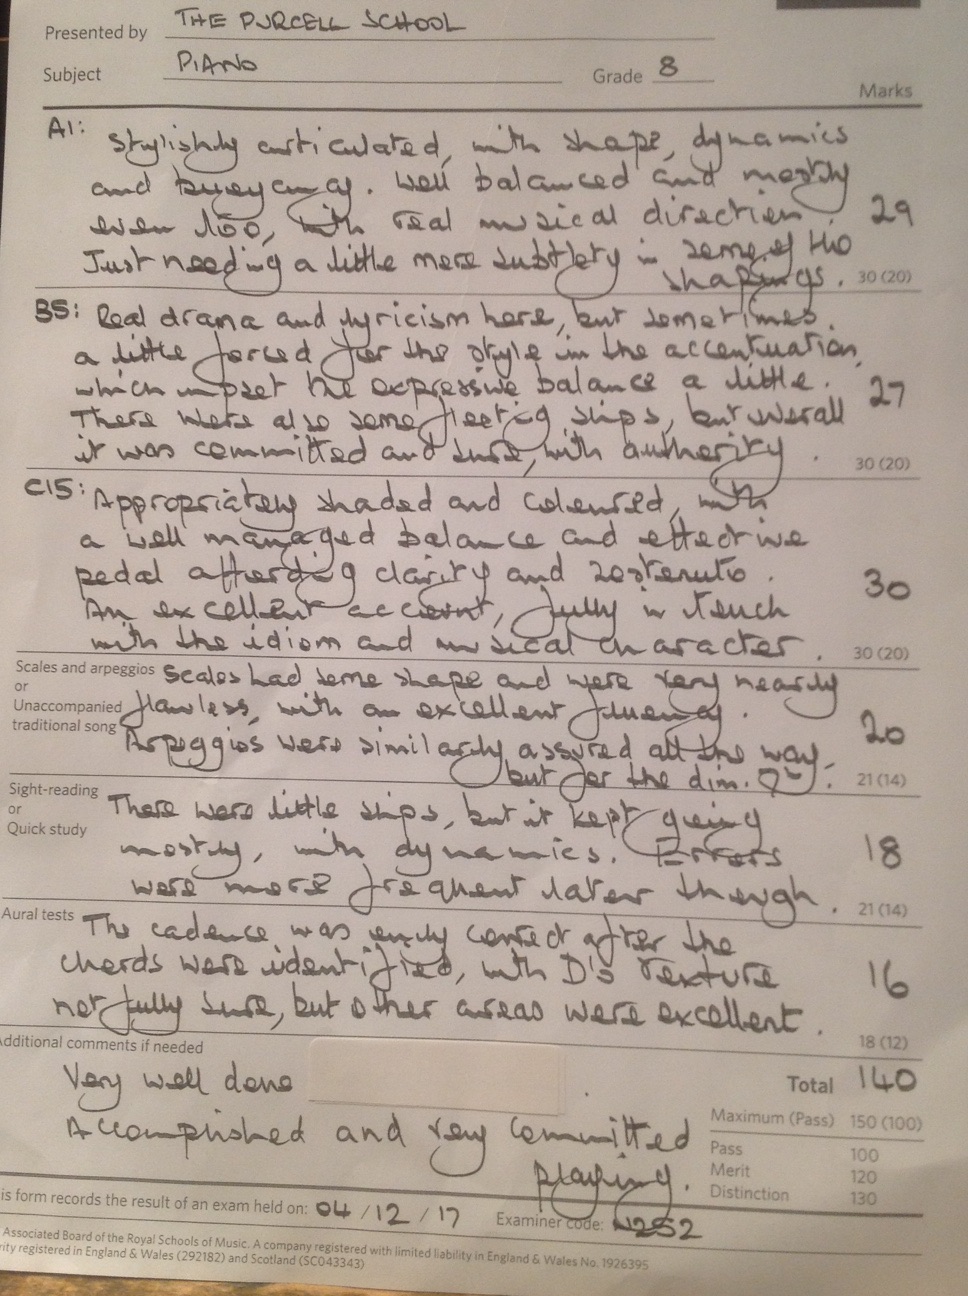 Presented by THE PURCELL SCHOOL
Subject PIANO Grade 8
Marks
A1: Stylishly articulated, with shape, dynamics
and buoyancy. Well balanced and mostly
even too, with real musical direction. 29
Just needing a little more subtlety in some of the
shapings. 30 (20)
B5: Real drama and lyricism here, but sometimes
a little forced for the style in the accentuation,
which upset the expressive balance a little. 27
There were also some fleeting slips, but overall
it was committed and sure, with authority. 30 (20)
C15: Appropriately shaded and coloured, with
a well managed balance and effective
pedal affording clarity and sostenuto. 30
An excellent account, fully in touch
with the idiom and musical character. 30 (20)
Scales and arpeggios Scales had some shape and were very nearly
or
Unaccompanied flawless, with an excellent fluency.
traditional song Arpeggios were similarly assured all the way, 20
but for the dim. 7. 21 (14)
Sight-reading There were little slips, but it kept going
or
Quick study mostly, with dynamics. Errors 18
were more frequent later though. 21 (14)
Aural tests The cadence was only correct after the
chords were identified, with D's texture 16
not fully sure, but other areas were excellent. 18 (12)
Additional comments if needed
Very well done Total 140
Accomplished and very committed Maximum (Pass) 150 (100)
playing. Pass 100
Merit 120
Distinction 130
is form records the result of an exam held on: 04/12/17 Examiner code: N252
Associated Board of the Royal Schools of Music. A company registered with limited liability in England & Wales No. 1926395
rity registered in England & Wales (292182) and Scotland (SC043343)